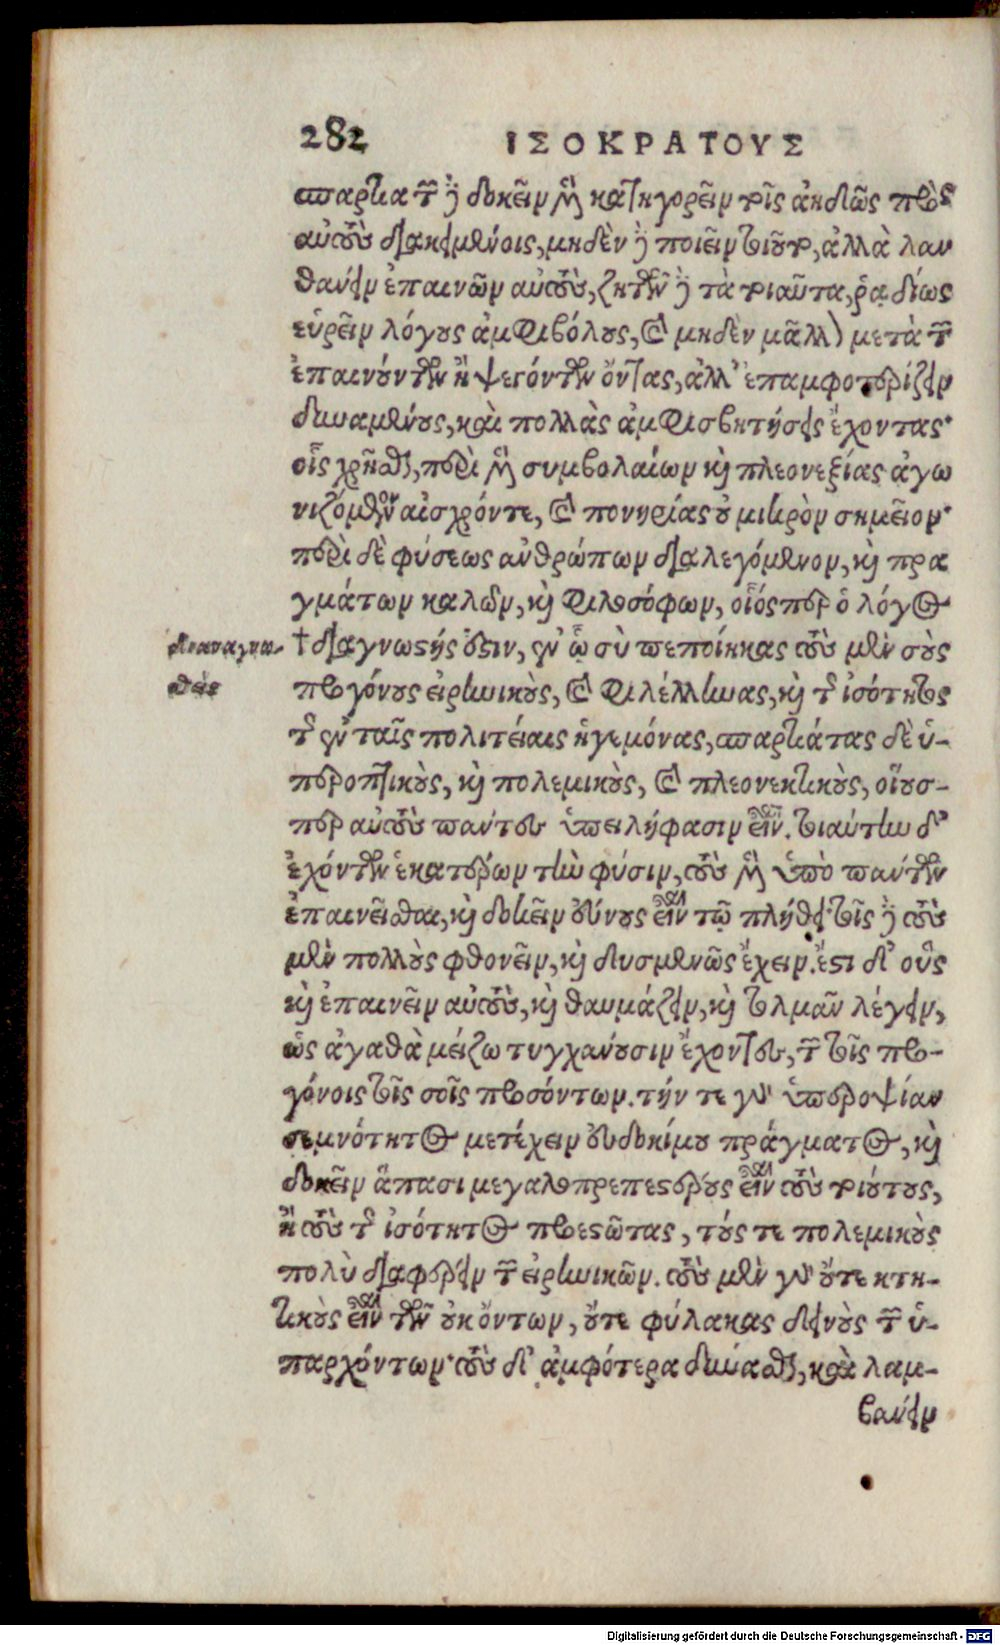 282 ΙΣΟΚΡΑΤΟΥΣ
σπαρτιατῶν δοκεῖν μὲν κατηγορεῖν τοῖς ἀηδῶς πρὸς
αὐτοὺς διακειμένοις, μηδὲν δὲ ποιεῖν τοιοῦτον, ἀλλὰ λαν
θάνειν ἐπαινῶν αὐτούς, ζητῶν δὲ τὰ τοιαῦτα, ῥᾳδίως
εὑρεῖν λόγους ἀμφιβόλους, καὶ μηδὲν μᾶλλον μετὰ τῶν
ἐπαινούντων ἢ ψεγόντων ὄντας, ἀλλ' ἐπαμφοτερίζειν
δυναμένους, καὶ πολλὰς ἀμφισβητήσεις ἔχοντας·
οἷς χρῆσθαι, περὶ μὲν συμβολαίων καὶ πλεονεξίας ἀγω
νιζόμενον αἰσχρόν τε, καὶ πονηρίας οὐ μικρὸν σημεῖον·
περὶ δὲ φύσεως ἀνθρώπων διαλεγόμενον, καὶ πρα
γμάτων καλὸν, καὶ φιλόσοφων, οἷός περ ὁ λόγος
διαναγνω- † διαγνωστής ὅστιν, ἐν ᾧ σὺ πεποίηκας τοὺς μὲν σοὺς
σθείς προγόνους εἰρηνικοὺς, καὶ φιλέλληνας, καὶ τῆς ἰσότητος
τῆς ἐν ταῖς πολιτείαις ἡγεμόνας, σπαρτιάτας δὲ ὑ-
περοπτικοὺς, καὶ πολεμικοὺς, καὶ πλεονεκτικοὺς, οἵουσ-
περ αὐτοὺς πάντες ὑπειλήφασιν εἶναι. τοιαύτην δ'
ἐχόντων ἑκατέρων τὴν φύσιν, τοὺς μὲν ὑπὸ πάντων
ἐπαινεῖσθαι, καὶ δοκεῖν εὔνους εἶναι τῷ πλήθει· τοῖς δὲ τοὺς
μὲν πολλοὺς φθονεῖν, καὶ δυσμενῶς ἔχειν. ἔστι δ' οὓς
καὶ ἐπαινεῖν αὐτούς, καὶ θαυμάζειν, καὶ τολμᾶν λέγειν,
ὡς ἀγαθὰ μείζω τυγχάνουσιν ἔχοντες, τῶν τοῖς προ-
γόνοις τοῖς σοῖς προσόντων. τήν τε γὰρ ὑπεροψίαν
σεμνότητος μετέχειν εὐδοκίμου πράγματος, καὶ
δοκεῖν ἅπασι μεγαλοπρεπεστέρους εἶναι τοὺς τοιούτους,
ἢ τοὺς τῆς ἰσότητος προεστῶτας, τούς τε πολεμικοὺς
πολὺ διαφέρειν τῶν εἰρηνικῶν. τοὺς μὲν γὰρ οὔτε κτη-
τικοὺς εἶναι τῶν οὐκ ὄντων, οὔτε φύλακας δεινοὺς τῶν ὑ-
παρχόντων· τοὺς δ' ἀμφότερα δύνασθαι, καὶ λαμ-
βάνειν
Digitalisierung gefördert durch die Deutsche Forschungsgemeinschaft - DFG